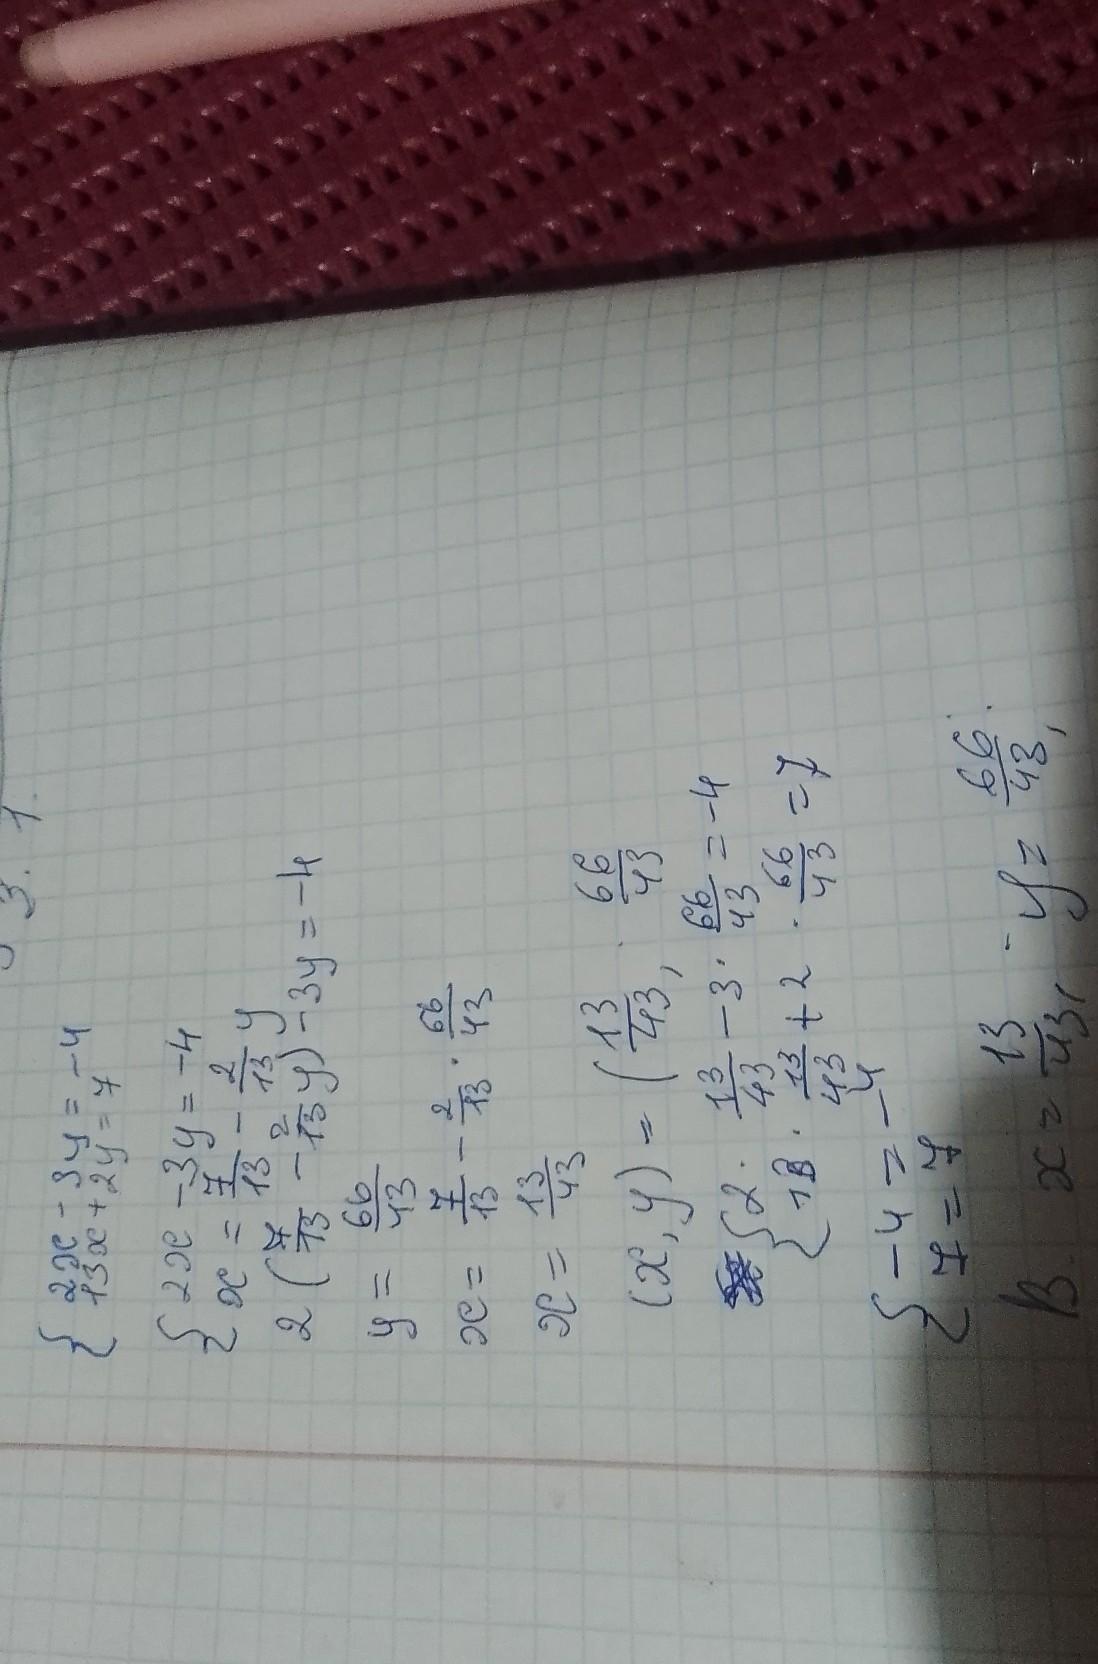 3. 1.
{ 2x - 3y = -4
13x + 2y = 7
{ 2x - 3y = -4
x = 7/13 - 2/13 y
2 (7/13 - 2/13 y) - 3y = -4
y = 66/43
x = 7/13 - 2/13 · 66/43
x = 13/43
(x, y) = (13/43, 66/43
{ 2 · 13/43 - 3 · 66/43 = -4
13 · 13/43 + 2 · 66/43 = 7
{ -4 = -4
7 = 7
В. x = 13/43, y = 66/43,